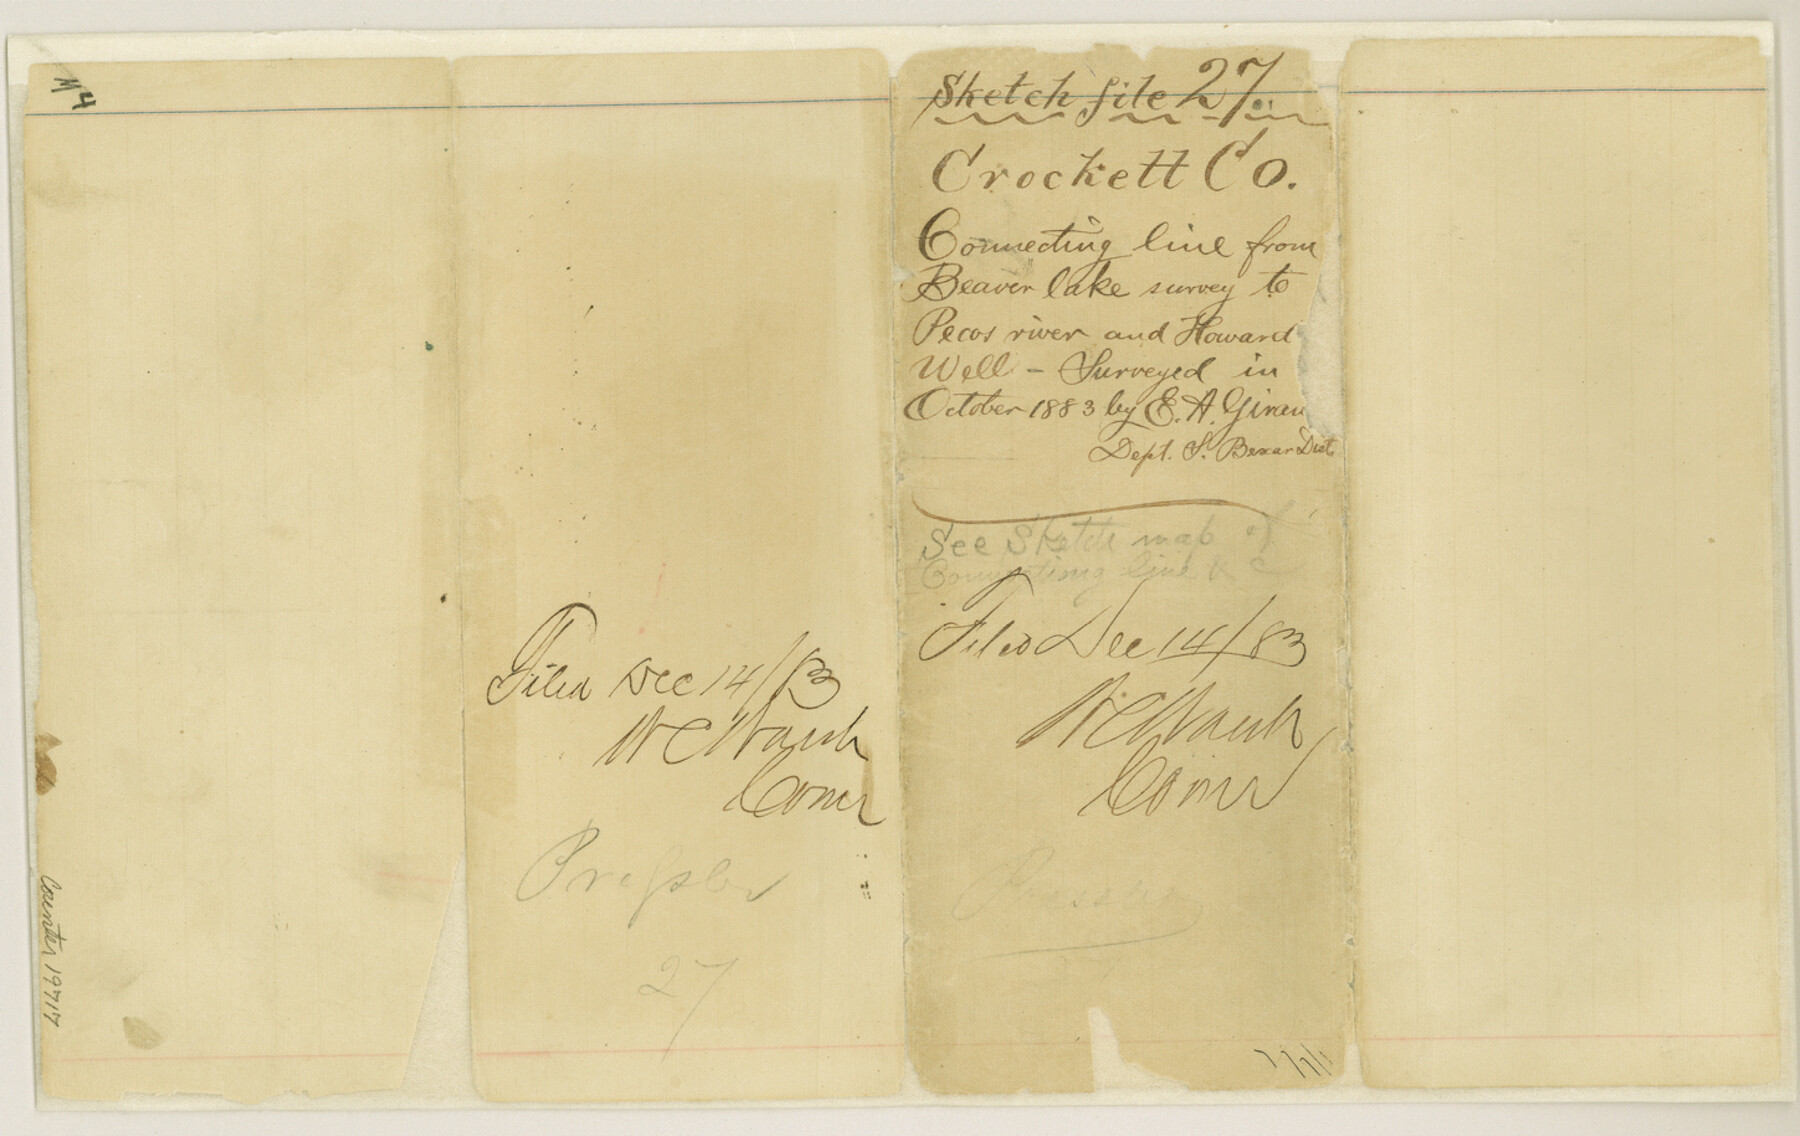 Sketch file 27
Crockett Co.
Connecting line from
Beaver lake survey to
Pecos river and Howard
Well - Surveyed in
October 1883 by E. A. Girau
Dept. S. Bexar Dist.
See Sketch map of
Connecting line & c
Filed Dec 14/83
W C Walsh
Comr
Pressler
Filed Dec 14/83
W C Walsh
Comr
Pressler
27
Counter 19717